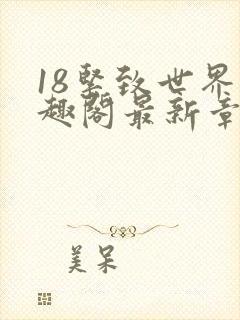 18坚致世界
趣阁最新章
美呆